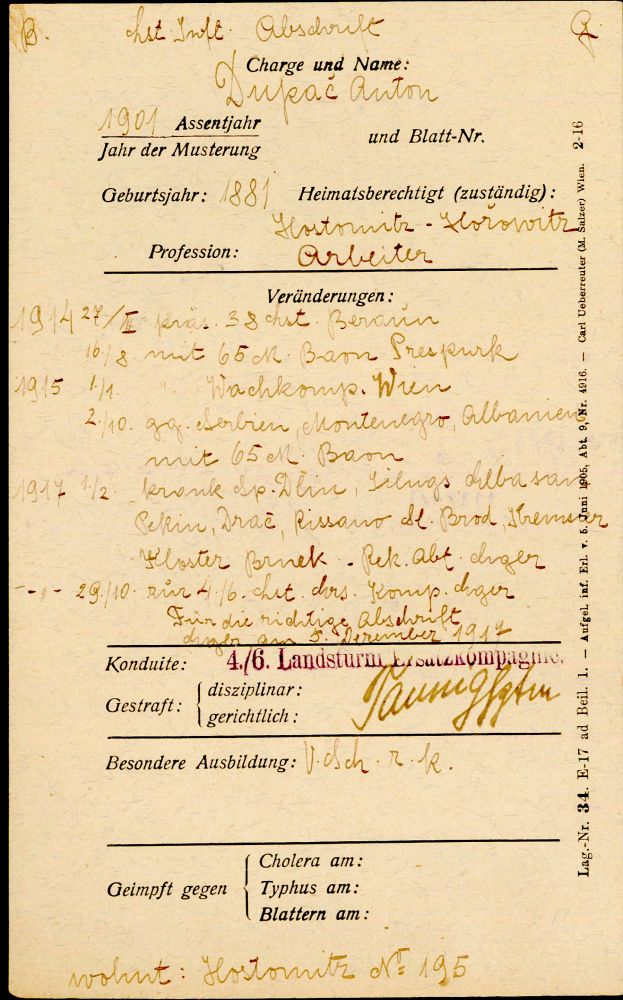 B. Lst. Inft. Abschrift
Charge und Name:
Dupač Anton
1901 Assentjahr
Jahr der Musterung
und Blatt-Nr.
Geburtsjahr: 1881 Heimatsberechtigt (zuständig):
Hostomitz - Hořowitz
Profession: Arbeiter
Veränderungen:
1914 27/II präs. 38 Lst. Beraun
10/8. mit 65 M. Baon Prespurk
1915 1./1. " Wachkomp. Wien
2./10. gg. Serbien, Montenegro, Albanien
mit 65 M. Baon
1917 1/2. krank Sp. Elbasan
Pekin, Drač, Rissano Sl. Brod, Kremsier
Kloster - Rek. Abt. Eger
-"- 29./10. zur 4./6. Lst. Ers. Komp. Eger
Für die richtige Abschrift
Eger am 5. Dezember 1917
Konduite: 4./6. Landsturm Ersatzkompagnie.
Gestraft: disziplinar:
gerichtlich:
Besondere Ausbildung: V. Sch. r. k.
Geimpft gegen
Cholera am:
Typhus am:
Blattern am:
wohnt: Hostomitz No 195
Lag.-Nr. 34. E-17 ad Beil. 1. — Aufgel. inf. Erl. v. 5. Juni 1905, Abt. 9, Nr. 4916. — Carl Ueberreuter (M. Salzer) Wien. 2-16